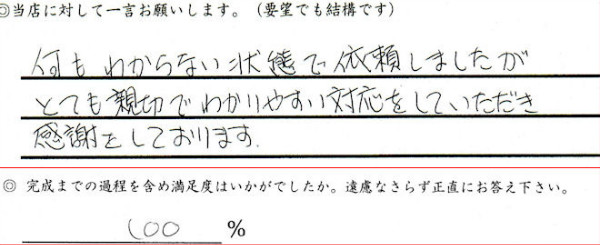 ◎当店に対して一言お願いします。（要望でも結構です）
何もわからない状態で依頼しましたが
とても親切でわかりやすい対応をしていただき
感謝をしております。
◎ 完成までの過程を含め満足度はいかがでしたか。遠慮なさらず正直にお答え下さい。
100 %